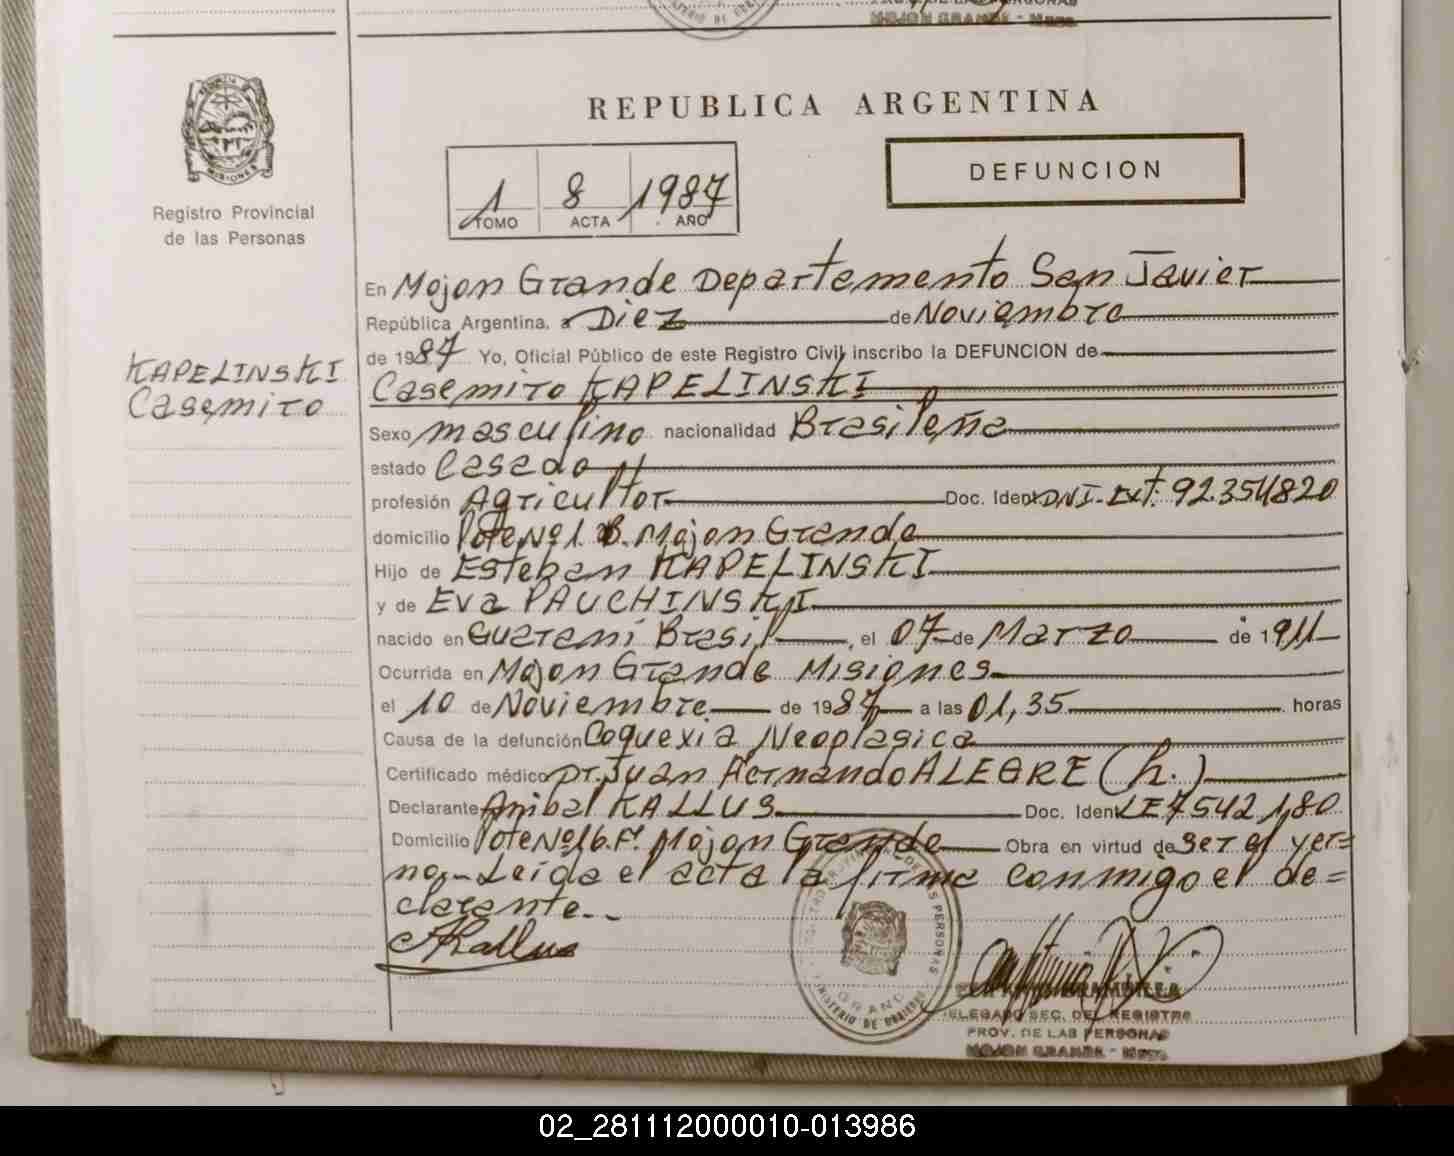 MOJON GRANDE - Mnes.
MISIONES
Registro Provincial
de las Personas
REPUBLICA ARGENTINA
1 8 1987
TOMO ACTA AÑO
DEFUNCION
En Mojon Grande Departamento San Javier
República Argentina, a Diez de Noviembre
de 1987 Yo, Oficial Público de este Registro Civil, inscribo la DEFUNCION de
KAPELINSKI
Casemiro
Casemiro KAPELINSKI
Sexo masculino nacionalidad Brasileña
estado Casado
profesión Agricultor Doc. Ident. DNI-Ext. 92.354820
domicilio Lote Nº1. B. Mojon Grande
Hijo de Esteban KAPELINSKI
y de Eva PAUCHINSKI
nacido en Guarani Brasil, el 07 de Marzo de 1911
Ocurrida en Mojon Grande Misiones
el 10 de Noviembre de 1987 a las 01,35 horas
Causa de la defunción Coquexia Neoplasica
Certificado médico Dr. Juan Hernando ALEGRE (h.)
Declarante Anibal KALLUS Doc. Ident. LE 7542180
Domicilio Lote Nº16.Fº. Mojon Grande Obra en virtud de Ser el yer=
no.- Leida el acta la firma conmigo el de=
clarante.-
AKallus
DELEGADO SEC. DEL REGISTRO
PROV. DE LAS PERSONAS
MOJON GRANDE - Mnes.
02_281112000010-013986